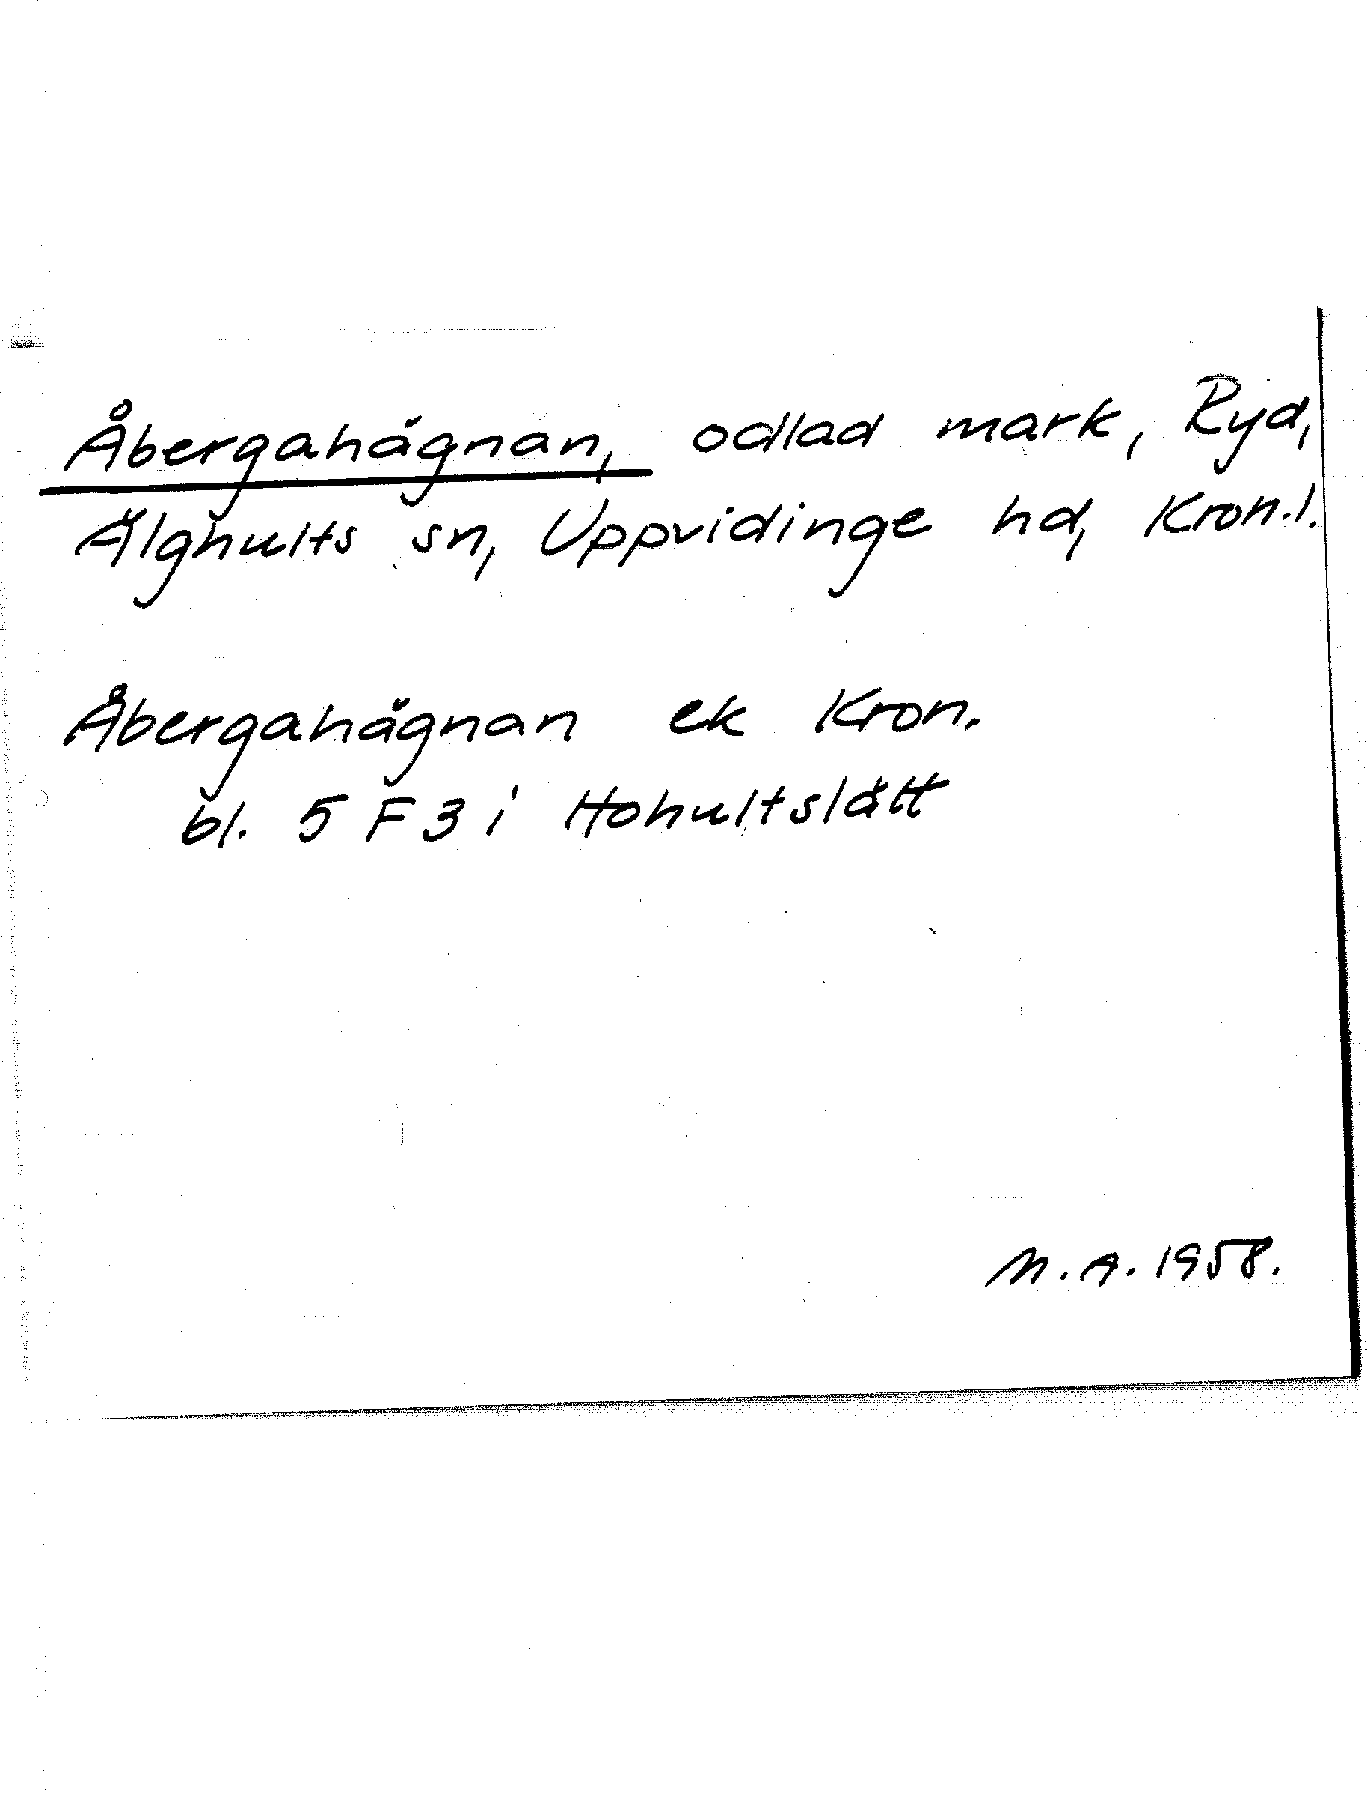 Åbergahägnan, odlad mark, Ryd,
Älghults sn, Uppvidinge hd, Kron.l.
Åbergahägnan ek Kron.
bl. 5 F 3 i Hohultslätt
M.A. 1958.